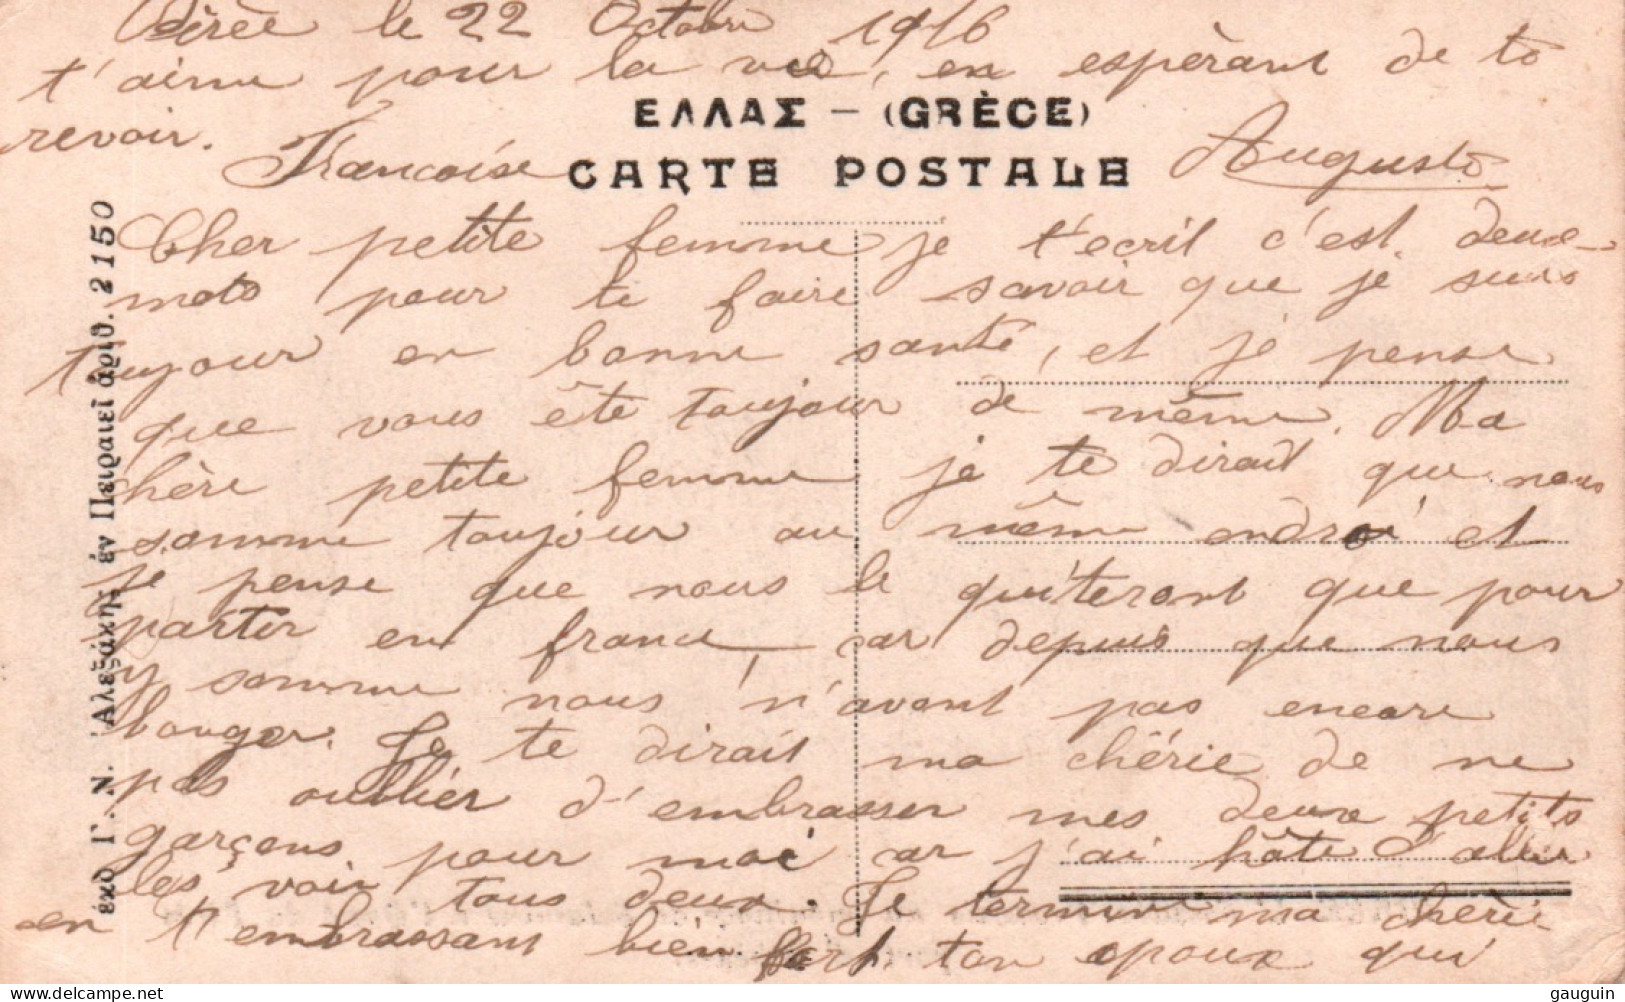 Pirée le 22 Octobre 1916
t'aime pour la vie, en espèrant de te
revoir.
ΕΛΛΑΣ – (GRÈCE)
Françoise
Auguste
CARTE POSTALE
Cher petite femme je t'ecrit c'est deux
mots pour te faire savoir que je suis
toujour en bonne santé, et je pense
que vous ête toujour de même. Ma
chère petite femme je te dirait que nous
somme toujour au même endroi et
je pense que nous le quiteront que pour
partir en france, car depuis que nous
y somme nous n'avont pas encore
bouger. Je te dirait ma chérie de ne
pas oublier d'embrasser mes deux petits
garçons pour moi car j'ai hâte d'aller
les voir tous deux. Je termine ma chérie
en t'embrassant bien fort. ton epoux qui
ἐκδ Γ. Ν. Ἀλεξάκης ἐν Πειραιεῖ ἀριθ. 2150
gauguin